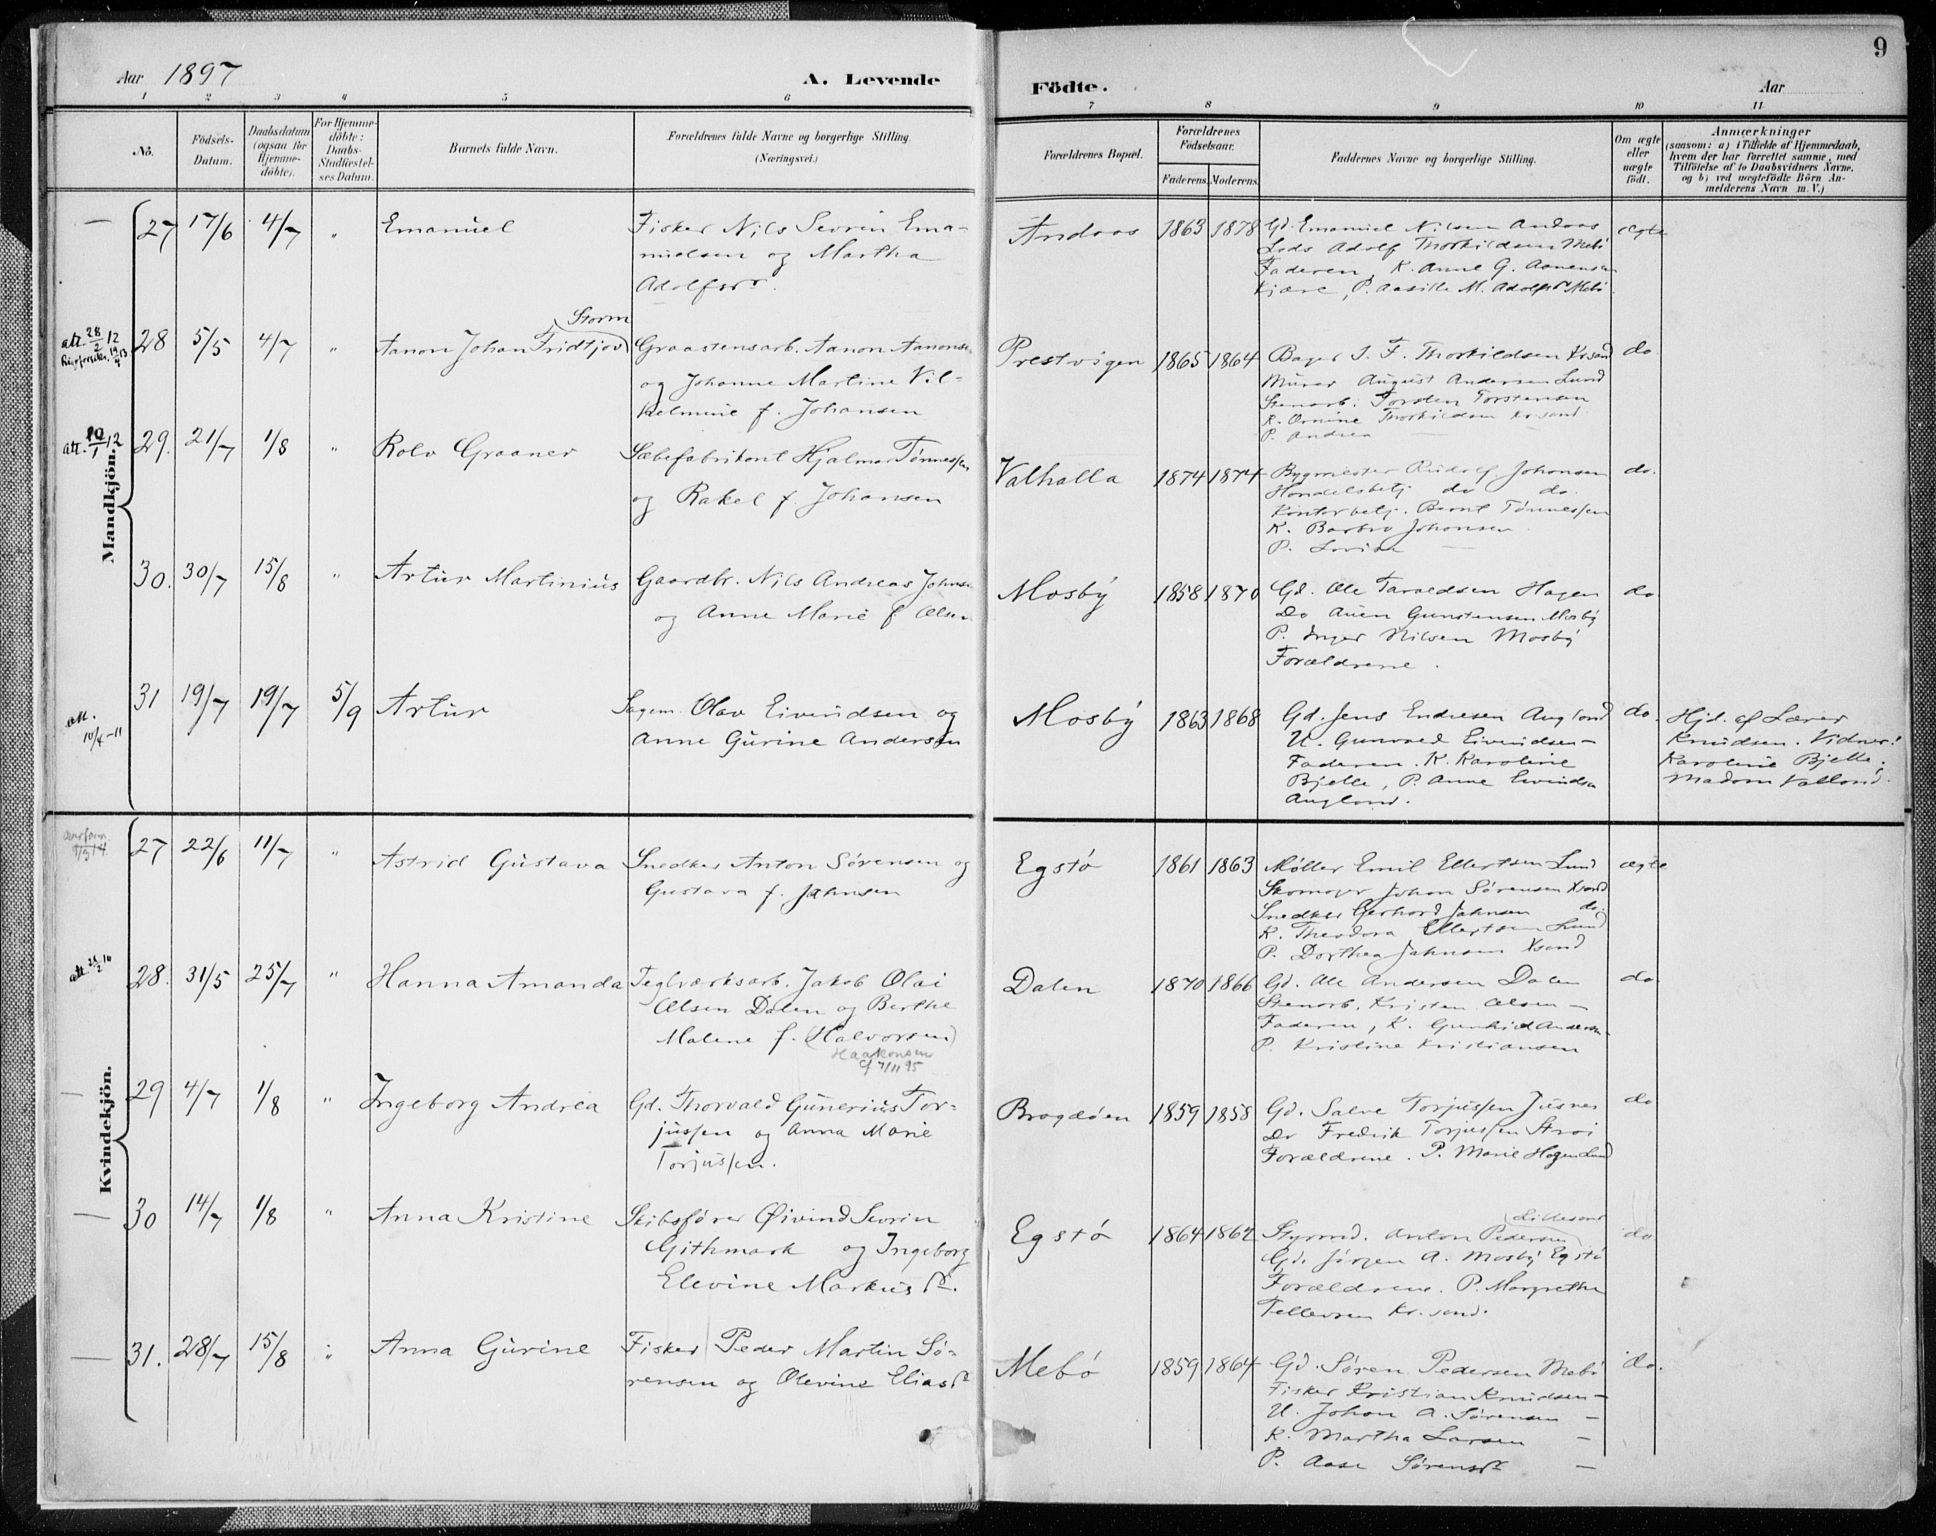 Aar 1897
A. Levende
1 2 3 4 5 6
No.
Födsels-Datum.
Daabsdatum (ogsaa for Hjemme-döbte).
For Hjemme-döbte: Daabs-Stadfæstel-ses Datum.
Barnets fulde Navn.
Forældrenes fulde Navne og borgerlige Stilling. (Næringsvei.)
Mandkjön.
27 17/6 4/7 " Emanuel Fisker Nils Sevrin Ema-
nuelsen og Martha
Adolfsdr.
Storm
att. 28/2 12 28 5/5 4/7 " Aanon Johan Fridtjov Graastensarb. Aanon Aanons.
og Johanne Martine Vil-
helmine f. Johansen
att. 10/1 12 29. 21/7 1/8 " Rolv Graaner Sæbefabrikant Hjalmar Tønnessen
og Rakel f. Johansen
30. 30/7 15/8 " Artur Martinius Gaardbr. Nils Andreas Johns.
og Anne Marie f. Olsen
att. 10/4-11 31 19/7 19/7 5/9 Artur Sagem. Olav Eivindsen og
Anne Gurine Andersen
Kvindekjön.
27 22/6 11/7 " Astrid Gustava Snedker Anton Sørensen og
Gustava f. Jahnsen
28. 31/5 25/7 " Hanna Amanda Teglværksarb. Jakob Olai
Olsen Dalen og Berthe
Malene f. (Halvorsen)
Haakonsen
cf 7/11 95
29 4/7 1/8 " Ingeborg Andrea Gd. Thorvald Gunerius Tor-
jussen og Anna Marie
Torjussen.
30 14/7 1/8 " Anna Kristine Skibsfører Øivind Sevrin
Githmark og Ingeborg
Elevine Markusdr.
31. 28/7 15/8 " Anna Gurine Fisker Peder Martin Sø-
rensen og Olevine Eliasdr
9
Födte.
Aar
7 8 9 10 11
Forældrenes Bopæl.
Forældrenes Födselsaar.
Faderens. Moderens.
Faddernes Navne og borgerlige Stilling.
Om ægte eller uægte födt.
Anmærkninger
(saasom: a) i Tilfælde af Hjemmedaab,
hvem der har forrettet samme, med
Tilföielse af to Daabsvidners Navne,
og b) ved uægtefödte Börn An-
melderens Navn m. V.)
Andaas 1863 1878 Gd. Emanuel Nilsen Andaas ægte
Lods Adolf Thorkildsen Mebø
Faderen, K. Anne G. Aanensen
Kjære, P. Aasille M. Adolfsdr Mebø
Prestvigen 1865 1864 Bager J. F. Thorkildsen Krsand do
Murer August Andersen Lund
Stenarb. Torsten Torstensen
K. Thorkildsen Kr.sand
P. Andrea —
Valhalla 1874 1874 Bygmester Rudolf Johansen do.
Handelsbetj do do.
Kontorbetj. Bernt Tønnessen
K. Barbro Johansen
P. Lovise —
Mosby 1858 1870 Gd. Ole Taraldsen Hagen do
Do Auen Gunstensen Mosby
P. Inger Nilsen Mosby
Forældrene.
Mosby 1863 1868 Gd. Jens Endresen Augland do. Hjd. af Lærer
U. Gunvald Eivindsen — Knudsen. Vidner:
Faderen. K. Karoline Karoline Bjelke,
Bjelke, P. Anne Eivindsen Madam Valland.
Augland.
Egstø 1861 1863 Møller Emil Ellertsen Lund ægte
Skomager Johan Sørensen Krsand
Snedker Gerhard Jahnsen do.
K. Theodora Ellertsen Lund
P. Dorthea Jahnsen Krsand
Dalen 1870 1866 Gd. Ole Andersen Dalen do
Stenarb. Kristen Olsen —
Faderen, K. Gunhild Andersen
P. Kristine Kristiansen
Bragdøen 1859 1858 Gd. Salve Torjussen Justnes do
Do Fredrik Torjussen Strai
Forældrene. P. Marie Hagen Lund
Lillesand
Egstø 1864 1862 Styrmd. Anton Pedersen do
Gd. Jørgen A. Mosby Egstø
Forældrene. P. Margrethe
Tellefsen Kr.sand.
Mebø 1859 1864 Gd. Søren Pedersen Mebø do.
Fisker Kristian Knudsen —
U. Johan A. Sørensen —
K. Martha Larsen —
P. Aase Sørensdr —